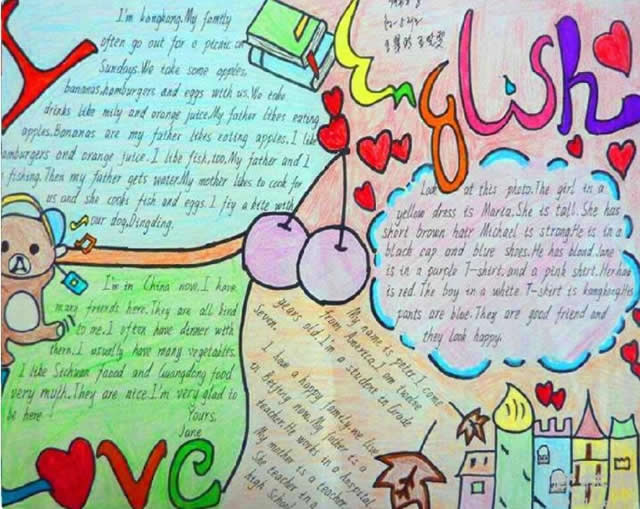 I'm kangkang.My family
often go out for a picnic on
Sundays.We take some apples,
bananas,hamburgers and eggs with us.We take
drinks like mily and orange juice.My father likes eating
apples.Bananas are my father likes eating apples. I like
hamburgers and orange juice. I like fish,too.My father and I
fishing. Then my father gets water.My mother likes to cook for
us and she cooks fish and eggs. I fiy a kite with
our dog,Dingding.
English
Look at this photo.The girl in a
yellow dress is Maria.She is tall. She has
short brown hair Michael is strong.He is in a
black cap and blue shoes.He has blond.Jane
is in a purple T-shirt.and a pink shirt.Her hair
is red. The boy in a white T-shirt is kangkang.His
pants are blue.They are good friend and
they look happy.
I'm in China now. I have
many friends here.They are all kind
to me. I often have dinner with
them. I usually have many vegetables.
I like Sichuan and Guangdong food
very much.They are nice.I'm very glad to
be here
Yours,
Jane
My name is peter. I come
from America. I am twelve
years old. I'm a student in Grade
Seven.
I have a happy family.we live
in Beijing now.My father is a
teacher.He works in a hospital
My mother is a teacher.
She teacher in a
High School
Love